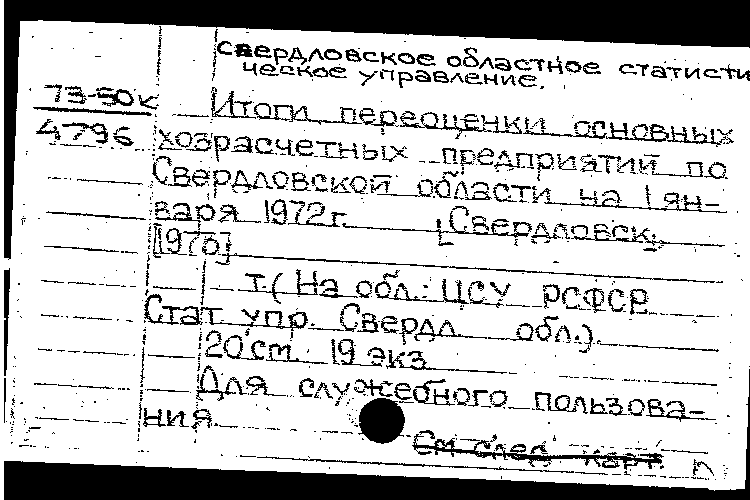 Свердловское областное статисти
ческое управление.
73-50к
4796
Итоги переоценки основных
хозрасчетных предприятий по
Свердловской области на 1 ян-
варя 1972 г. [Свердловск,
1976]
т. (На обл.: ЦСУ РСФСР
Стат упр. Свердл обл.)
20 см. 19 экз
Для служебного пользова-
ния
См след карт. п